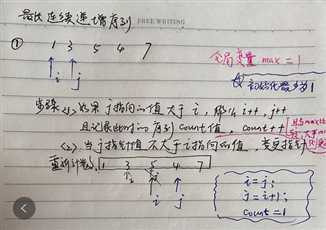 最长连续递增序列 FREE WRITING
① 1 3 5 4 7
全局变量 max = 1
i j
初始化最少为1
步骤<1> 如果 j指向的值大于i, 那么 i++, j++
且记录此时的序列count值, count++
<2> 当j指针值不大于i指向的值,
重新计数 1 3 5 4 7
i j
i = j;
j = i+1;
count = 1